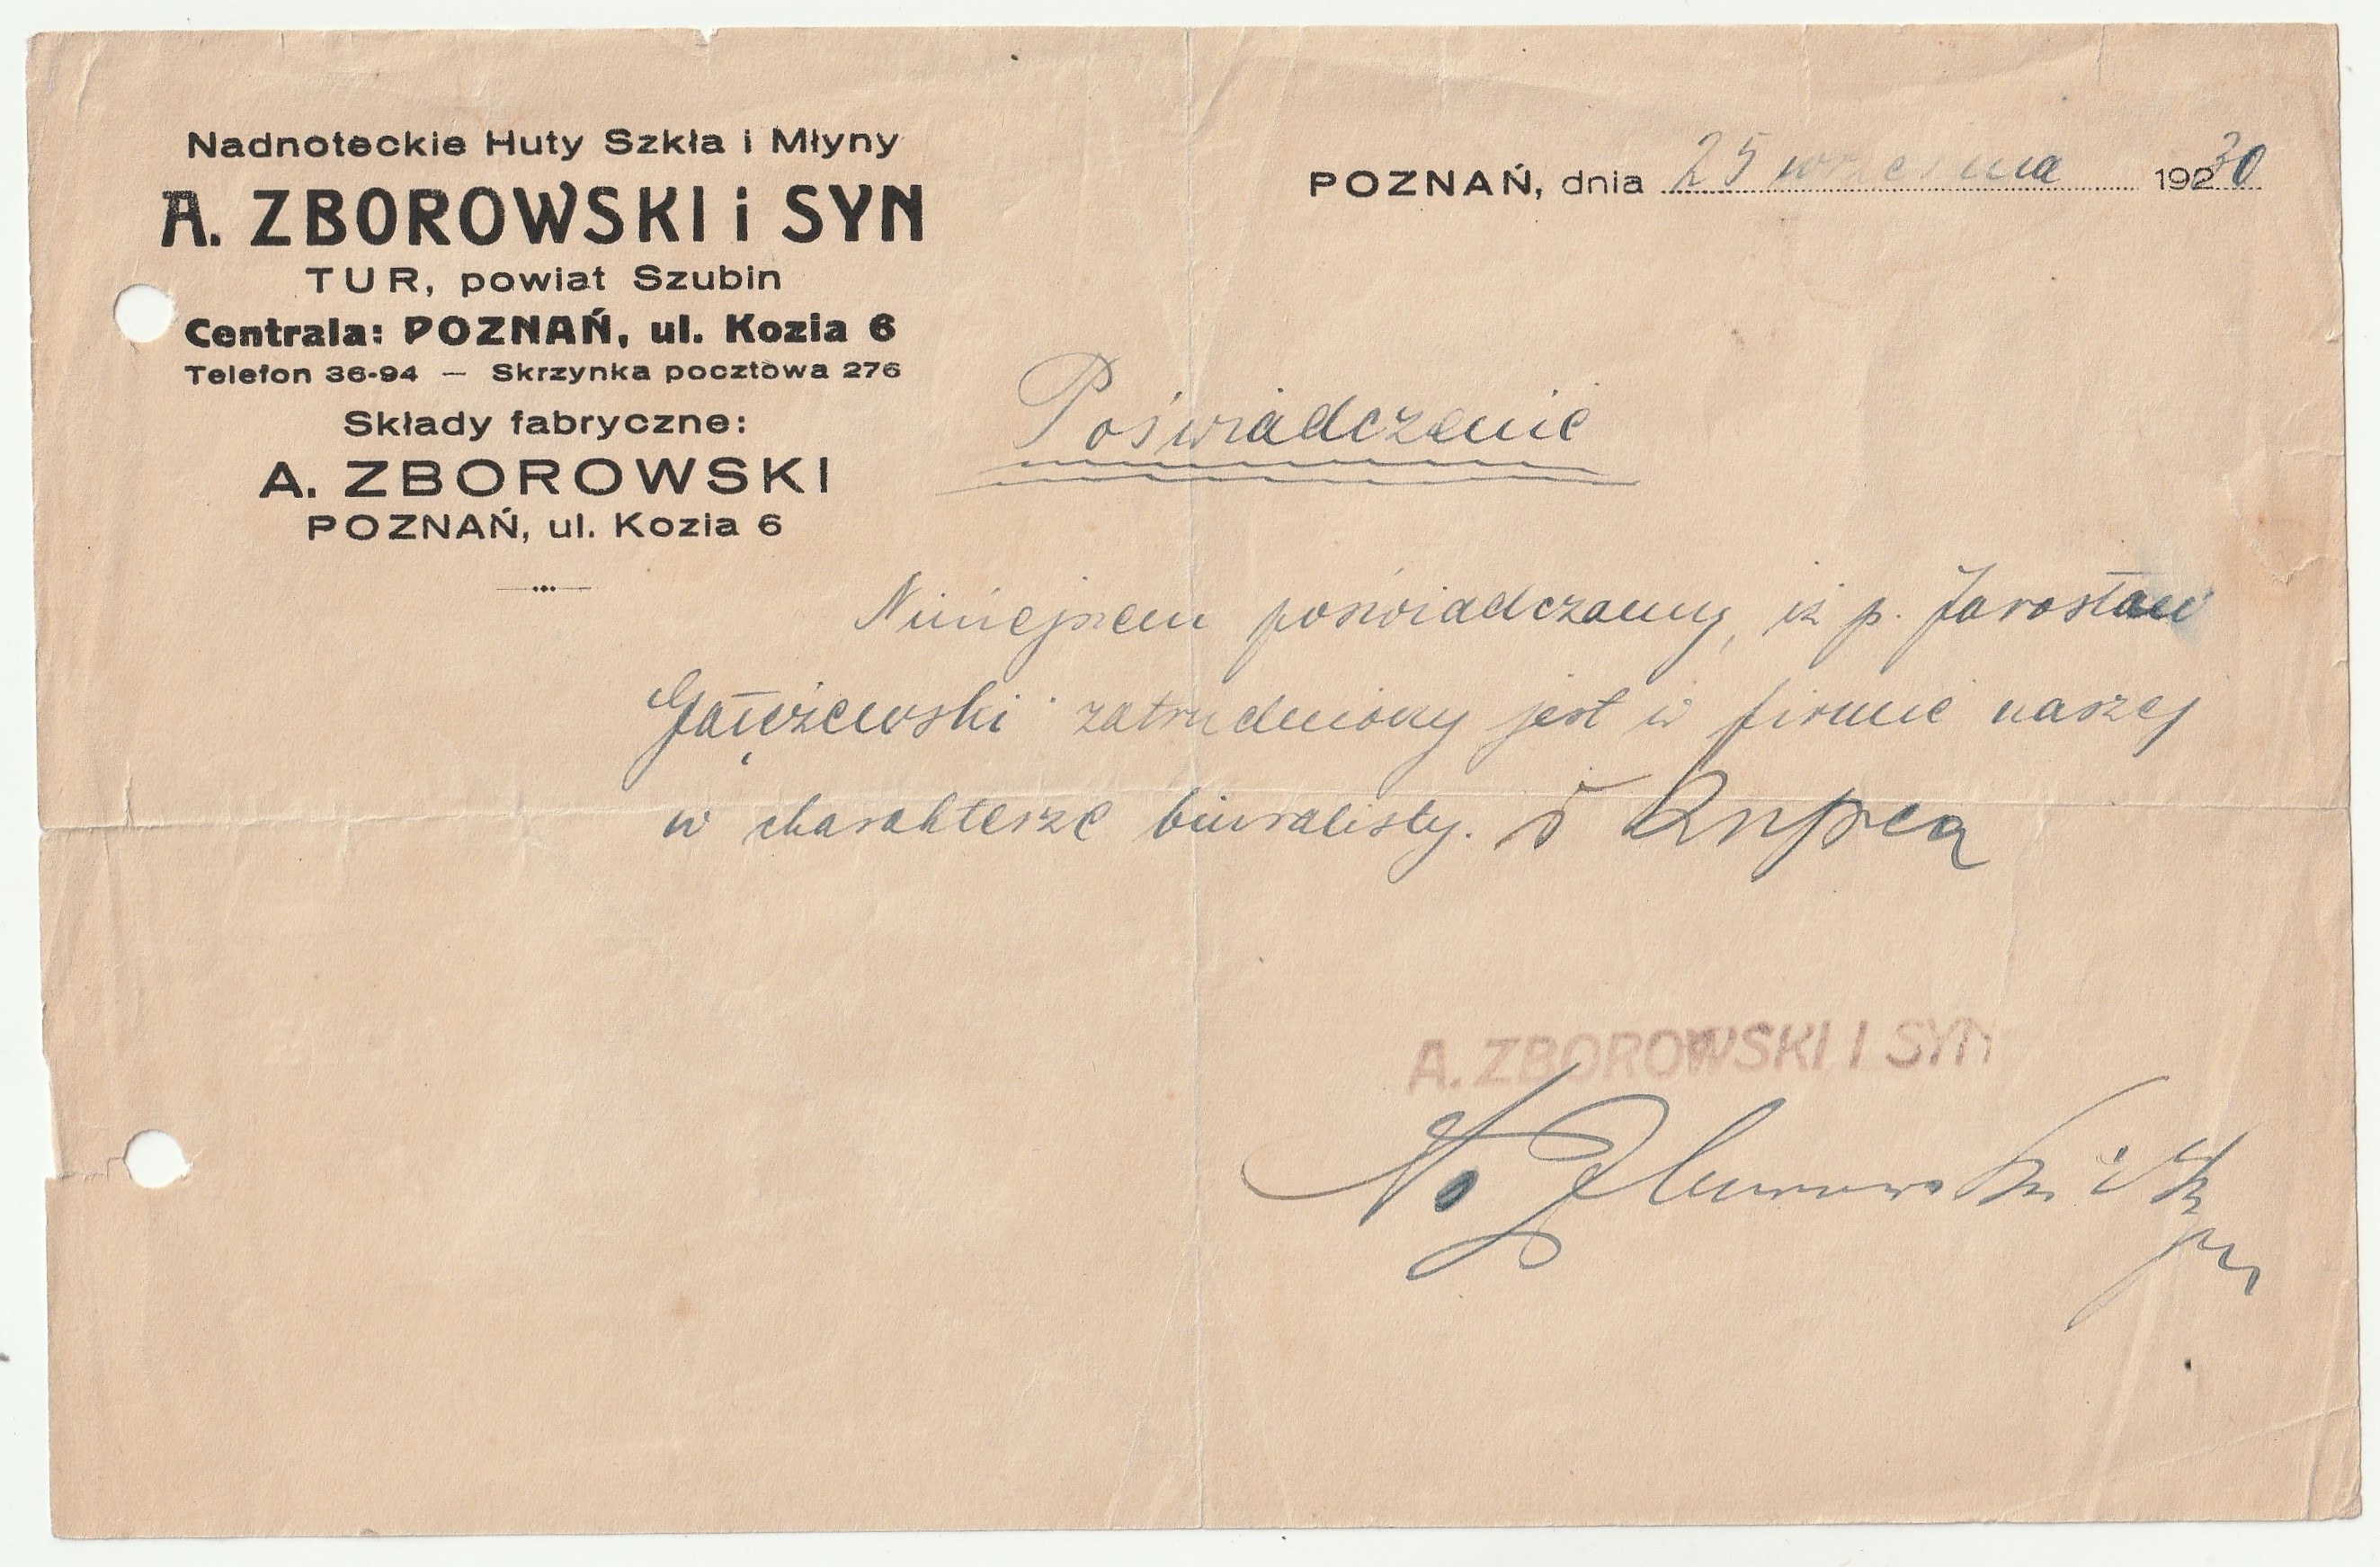 Nadnoteckie Huty Szkła i Młyny
A. ZBOROWSKI i SYN
TUR, powiat Szubin
Centrala: POZNAŃ, ul. Kozia 6
Telefon 36-94 — Skrzynka pocztowa 276
Składy fabryczne:
A. ZBOROWSKI
POZNAŃ, ul. Kozia 6
POZNAŃ, dnia 25 września 19230
Poświadczenie
Niniejszem poświadczamy, iż p. Jarosław
Gałężewski zatrudniony jest w firmie naszej
w charakterze biuralisty.
A. ZBOROWSKI I SYN
Zborowski i Syn